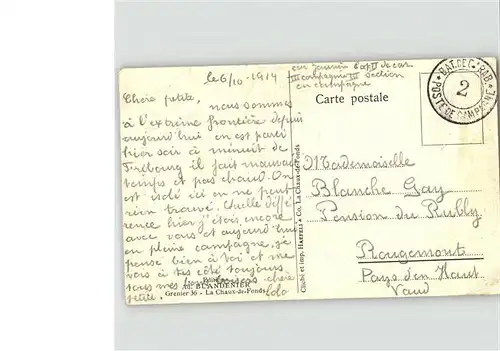 le 6/10 - 1914
car Jeannin bapII de car.
III compagnie III section
en campagne
BAT. DE C. * CAR.
2
* POSTE DE CAMPAGNE *
Carte postale
Chère petite,
nous sommes
à l'extrême frontière depuis
aujourd'hui on est parti
hier soir à minuit de
Fribourg il fait mauvais
temps et pas chaud. On
est isolé ici on ne peut
rien trouver. Quelle diffé
rence hier j'étais encore
avec vous et aujourd'hui
en pleine campagne, je
pense bien à toi et me
vois à tes côté toujours
tous mes baisers chère
petite. Lolo
Ad. BLANDENIER
Grenier 36 - La Chaux-de-Fonds
Cliché et imp. HAEFELI & Co. La Chaux-de-Fonds
Mademoiselle
Blanche Gay
Pension du Rubly
Rougemont
Pays d'en Haut
Vaud